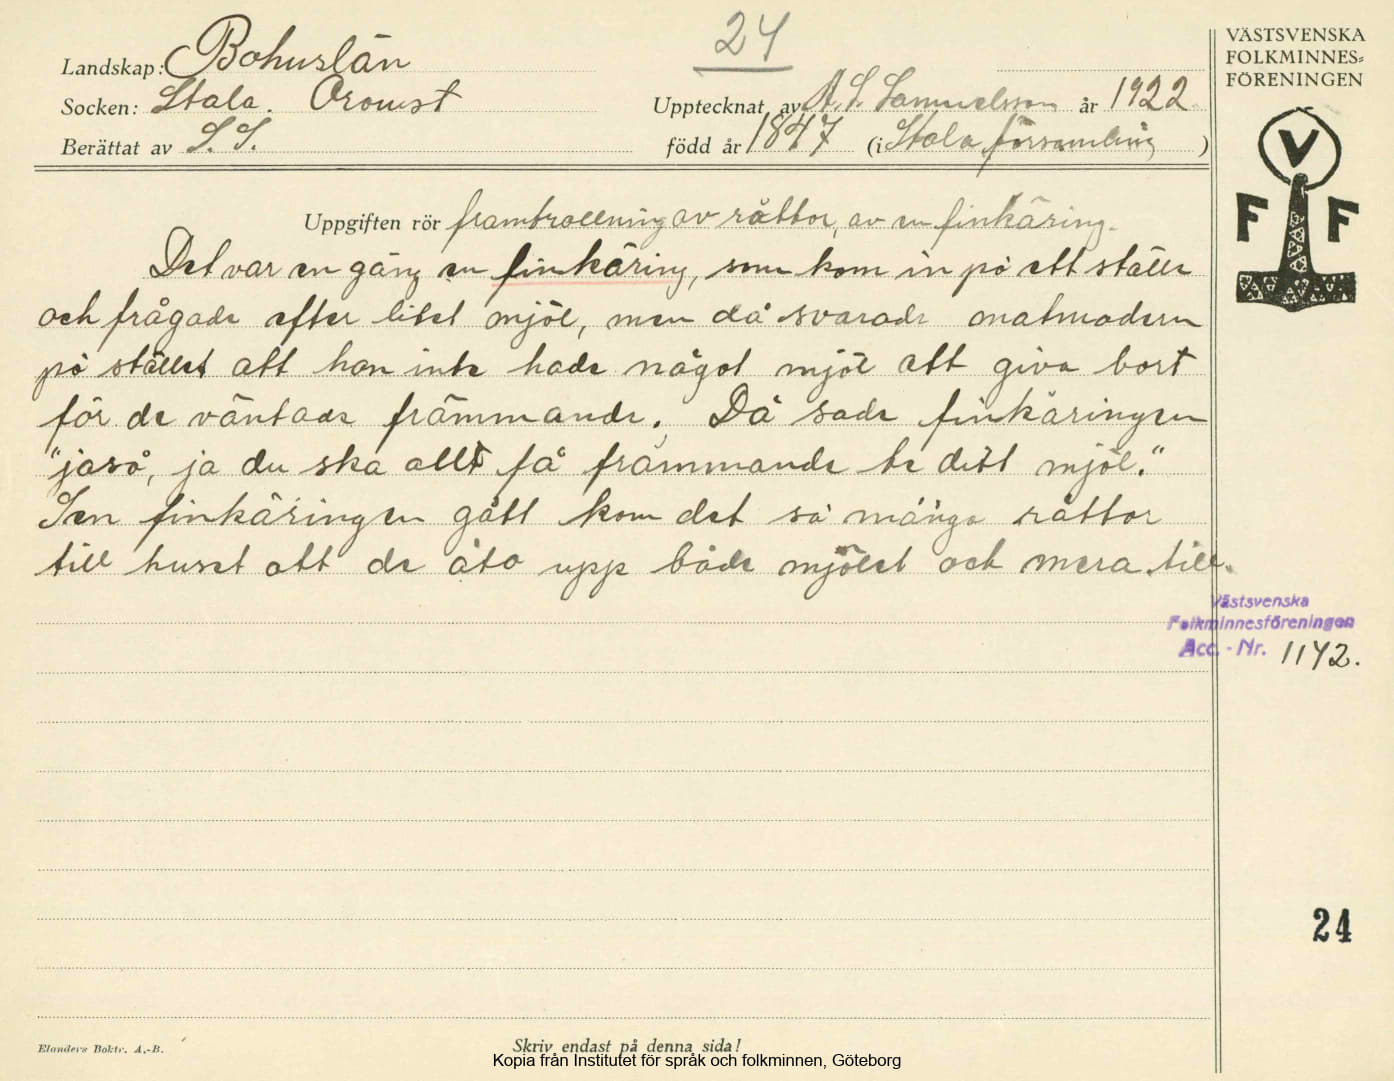 24
VÄSTSVENSKA
FOLKMINNES=
FÖRENINGEN
Landskap: Bohuslän
Socken: Stala. Oroust
Upptecknat av A. S. Samuelsson år 1922
Berättat av S. S.
född år 1847 (i Stala församling)
V
F F
Uppgiften rör framtrollning av råttor, av en finkäring.
Det var en gång en finkäring, som kom in på ett ställe
och frågade efter litet mjöl, men då svarade matmodern
på stället att hon inte hade något mjöl att giva bort
för de väntade främmande. Då sade finkäringen
"jaså, ja du ska allt få främmande te ditt mjöl."
Sen finkäringen gått kom det så många råttor
till huset att de åto upp både mjölet och mera till.
Västsvenska
Folkminnesföreningen
Acc. - Nr. 1142.
24
Elanders Boktr. A.-B.
Skriv endast på denna sida!
Kopia från Institutet för språk och folkminnen, Göteborg